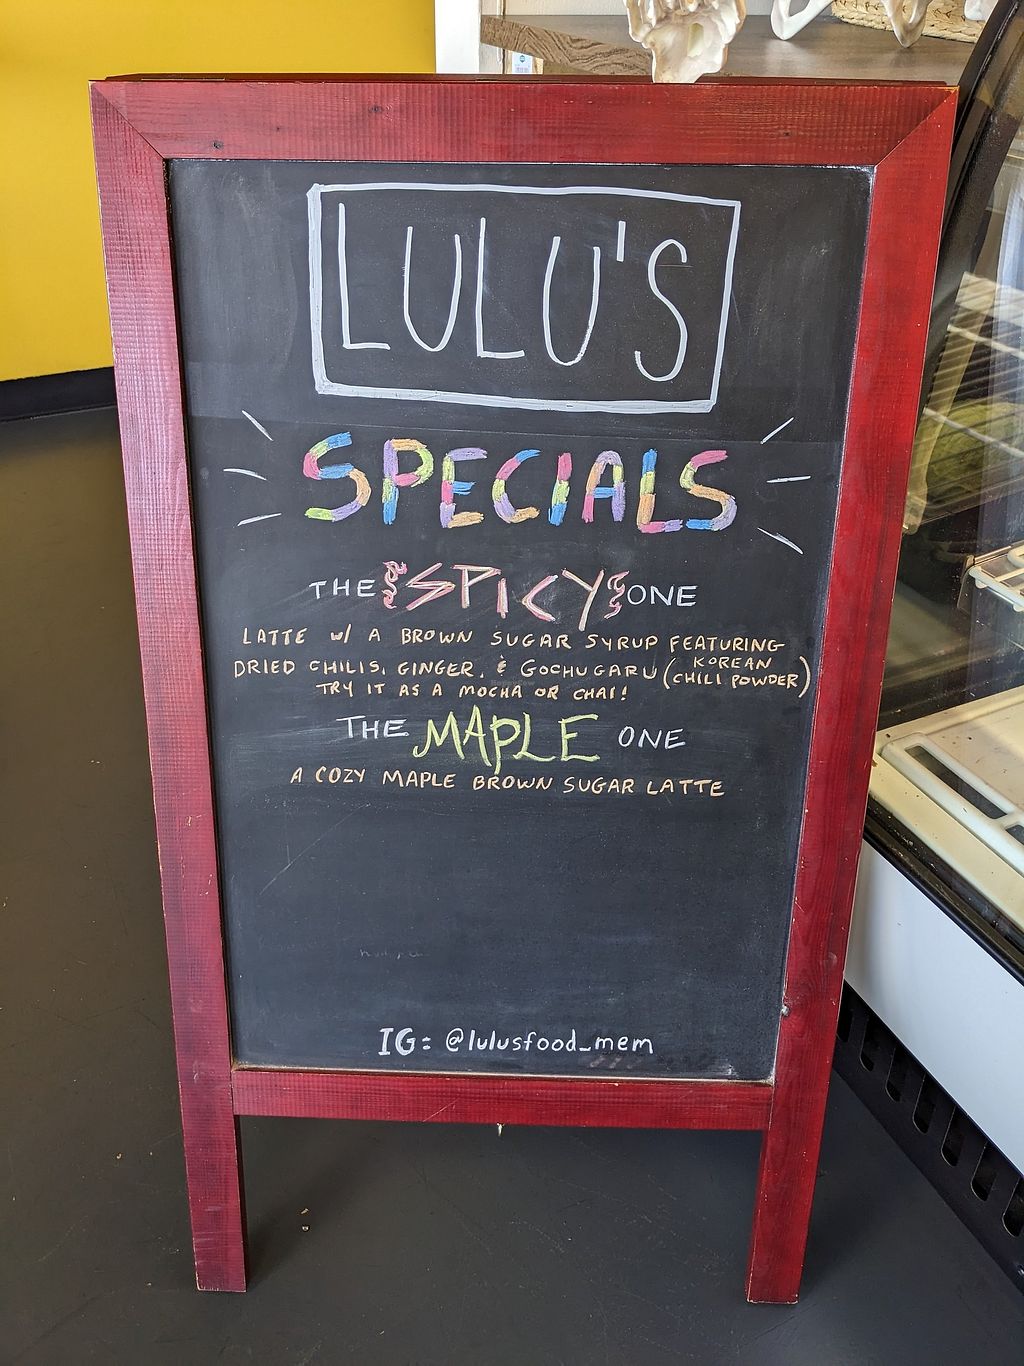 LULU'S
SPECIALS
THE SPICY ONE
LATTE w/ A BROWN SUGAR SYRUP FEATURING
DRIED CHILIS, GINGER, & GOCHUGARU (KOREAN CHILI POWDER)
TRY IT AS A MOCHA OR CHAI!
THE MAPLE ONE
A COZY MAPLE BROWN SUGAR LATTE
IG: @lulusfood_mem